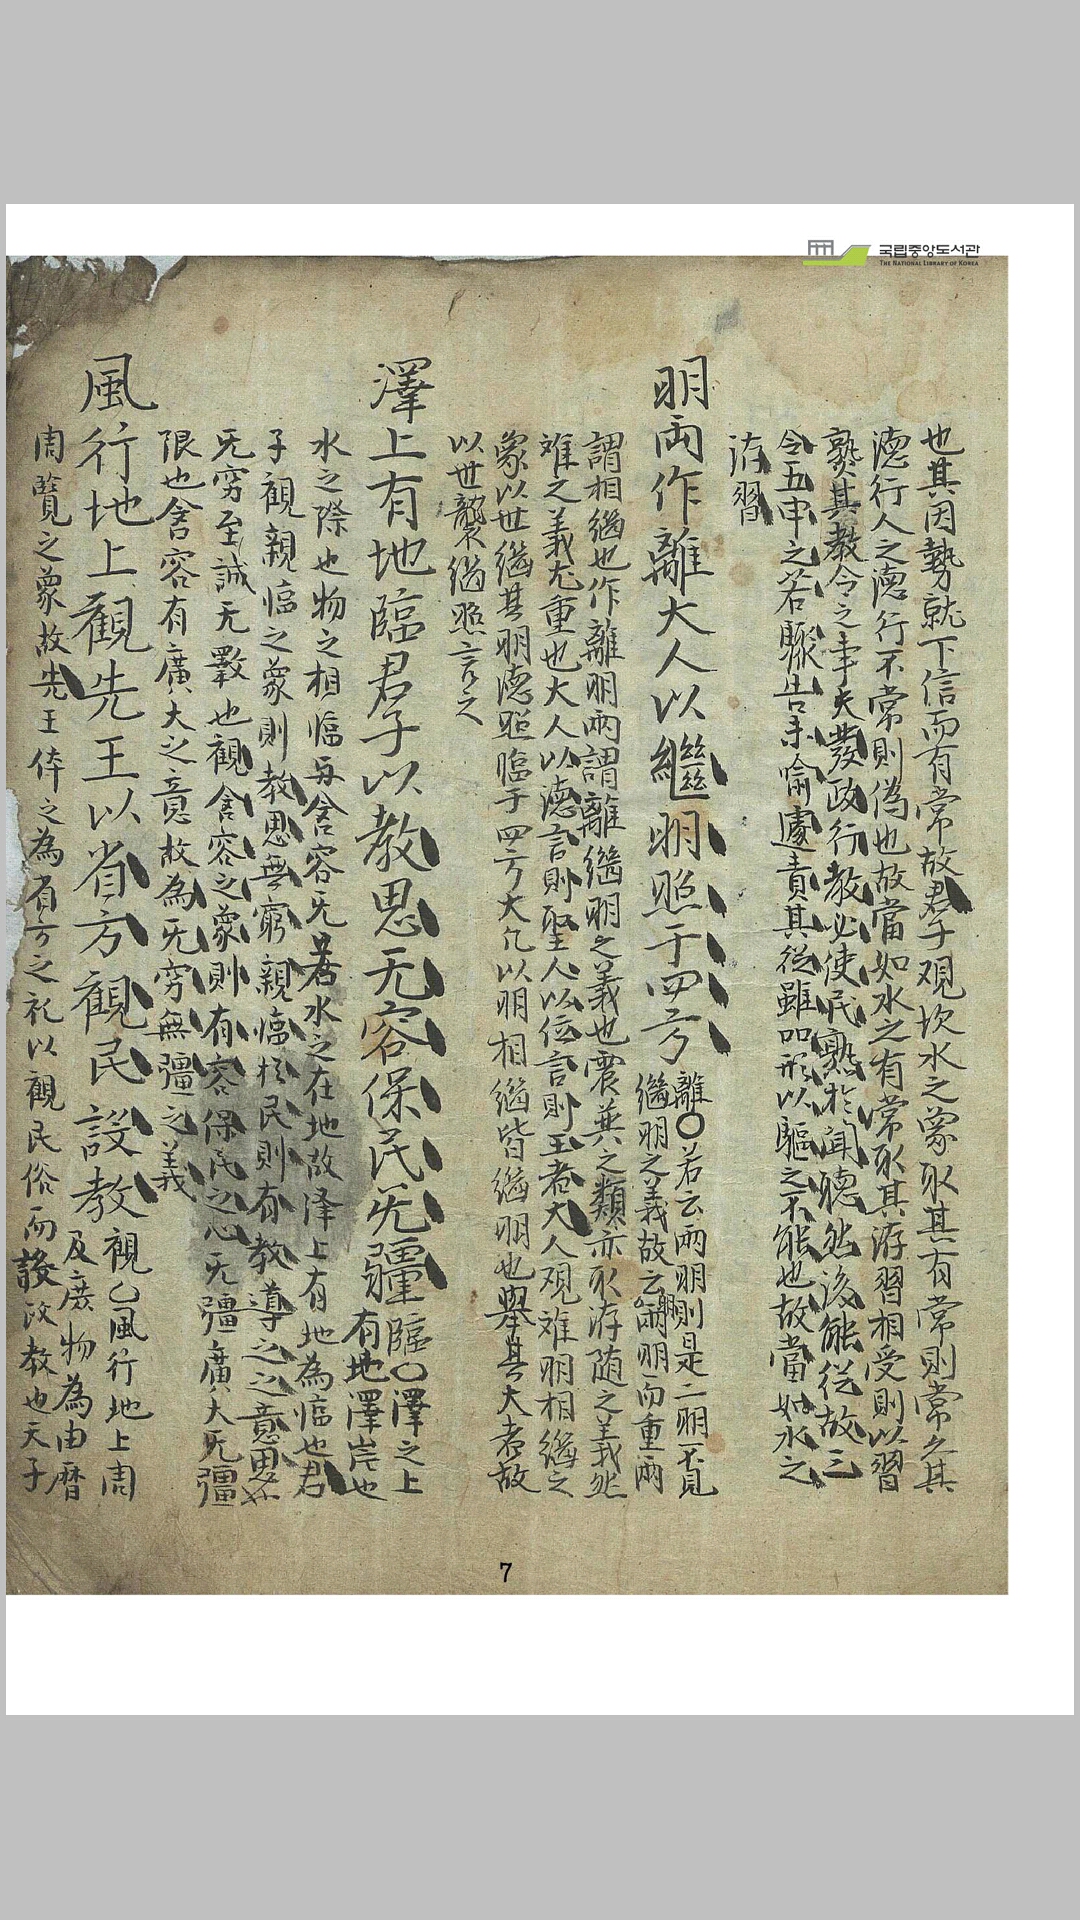 국립중앙도서관
THE NATIONAL LIBRARY OF KOREA
也其因勢就下信而有常故君子观坎水之象取其有常則常久其
德行人之德行不常則偽也故當如水之有常取其洊習相受則以習
熟其教令之事夫發政行教必使民熟於聞聽然後能從故三
令五申之若驟告未喻遽責其從雖嚴刑以驅之不能也故當如水之
洊習
明兩作離大人以繼明照于四方
離〇若云兩明則是二明不見
繼明之義故云明兩明而重兩
謂相継也作離明兩謂離継明之義也震巽之類亦取洊随之義然
離之義尤重也大人以德言則聖人以位言則王者大人观離明相継之
象以世継其明德照臨于四方大凡以明相継皆継明也舉其大者故
以世襲継照言之
澤上有地臨君子以教思无容保民无疆
臨〇澤之上
有地澤岸也
水之際也物之相臨与含容无若水之在地故泽上有地為臨也君
子觀親臨之象則教思無窮親臨於民則有教導之之意思也
无穷至誠无斁也觀含容之象則有容保民之心无疆廣大无疆
限也含容有廣大之意故為无穷無疆之義
風行地上觀先王以省方觀民設教
觀〇風行地上周
及庶物為由曆
周覽之象故先王体之為省方之礼以觀民俗而設政教也天子
7